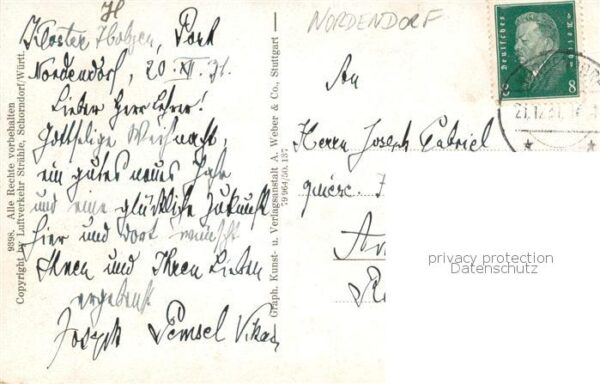 H
Kloster Holzen, Post
Nordendorf, 20. XII. 31.
Lieber Herr Lehrer!
Gottselige Weihnacht,
ein gutes neues Jahr
und eine glückliche Zukunft
hier und dort wünscht
Ihnen und Ihren Lieben
ergebenst
Joseph Pemsel Vikar
9398. Alle Rechte vorbehalten
Copyright by Luftverkehr Strähle, Schorndorf/Württ.
Graph. Kunst- u. Verlagsanstalt A. Weber & Co., Stuttgart
79964/50. 137
NORDENDORF
Deutsches Reich
8 8
21.12.31.
An
Herrn Joseph Gabriel
quiesc.
privacy protection
Datenschutz